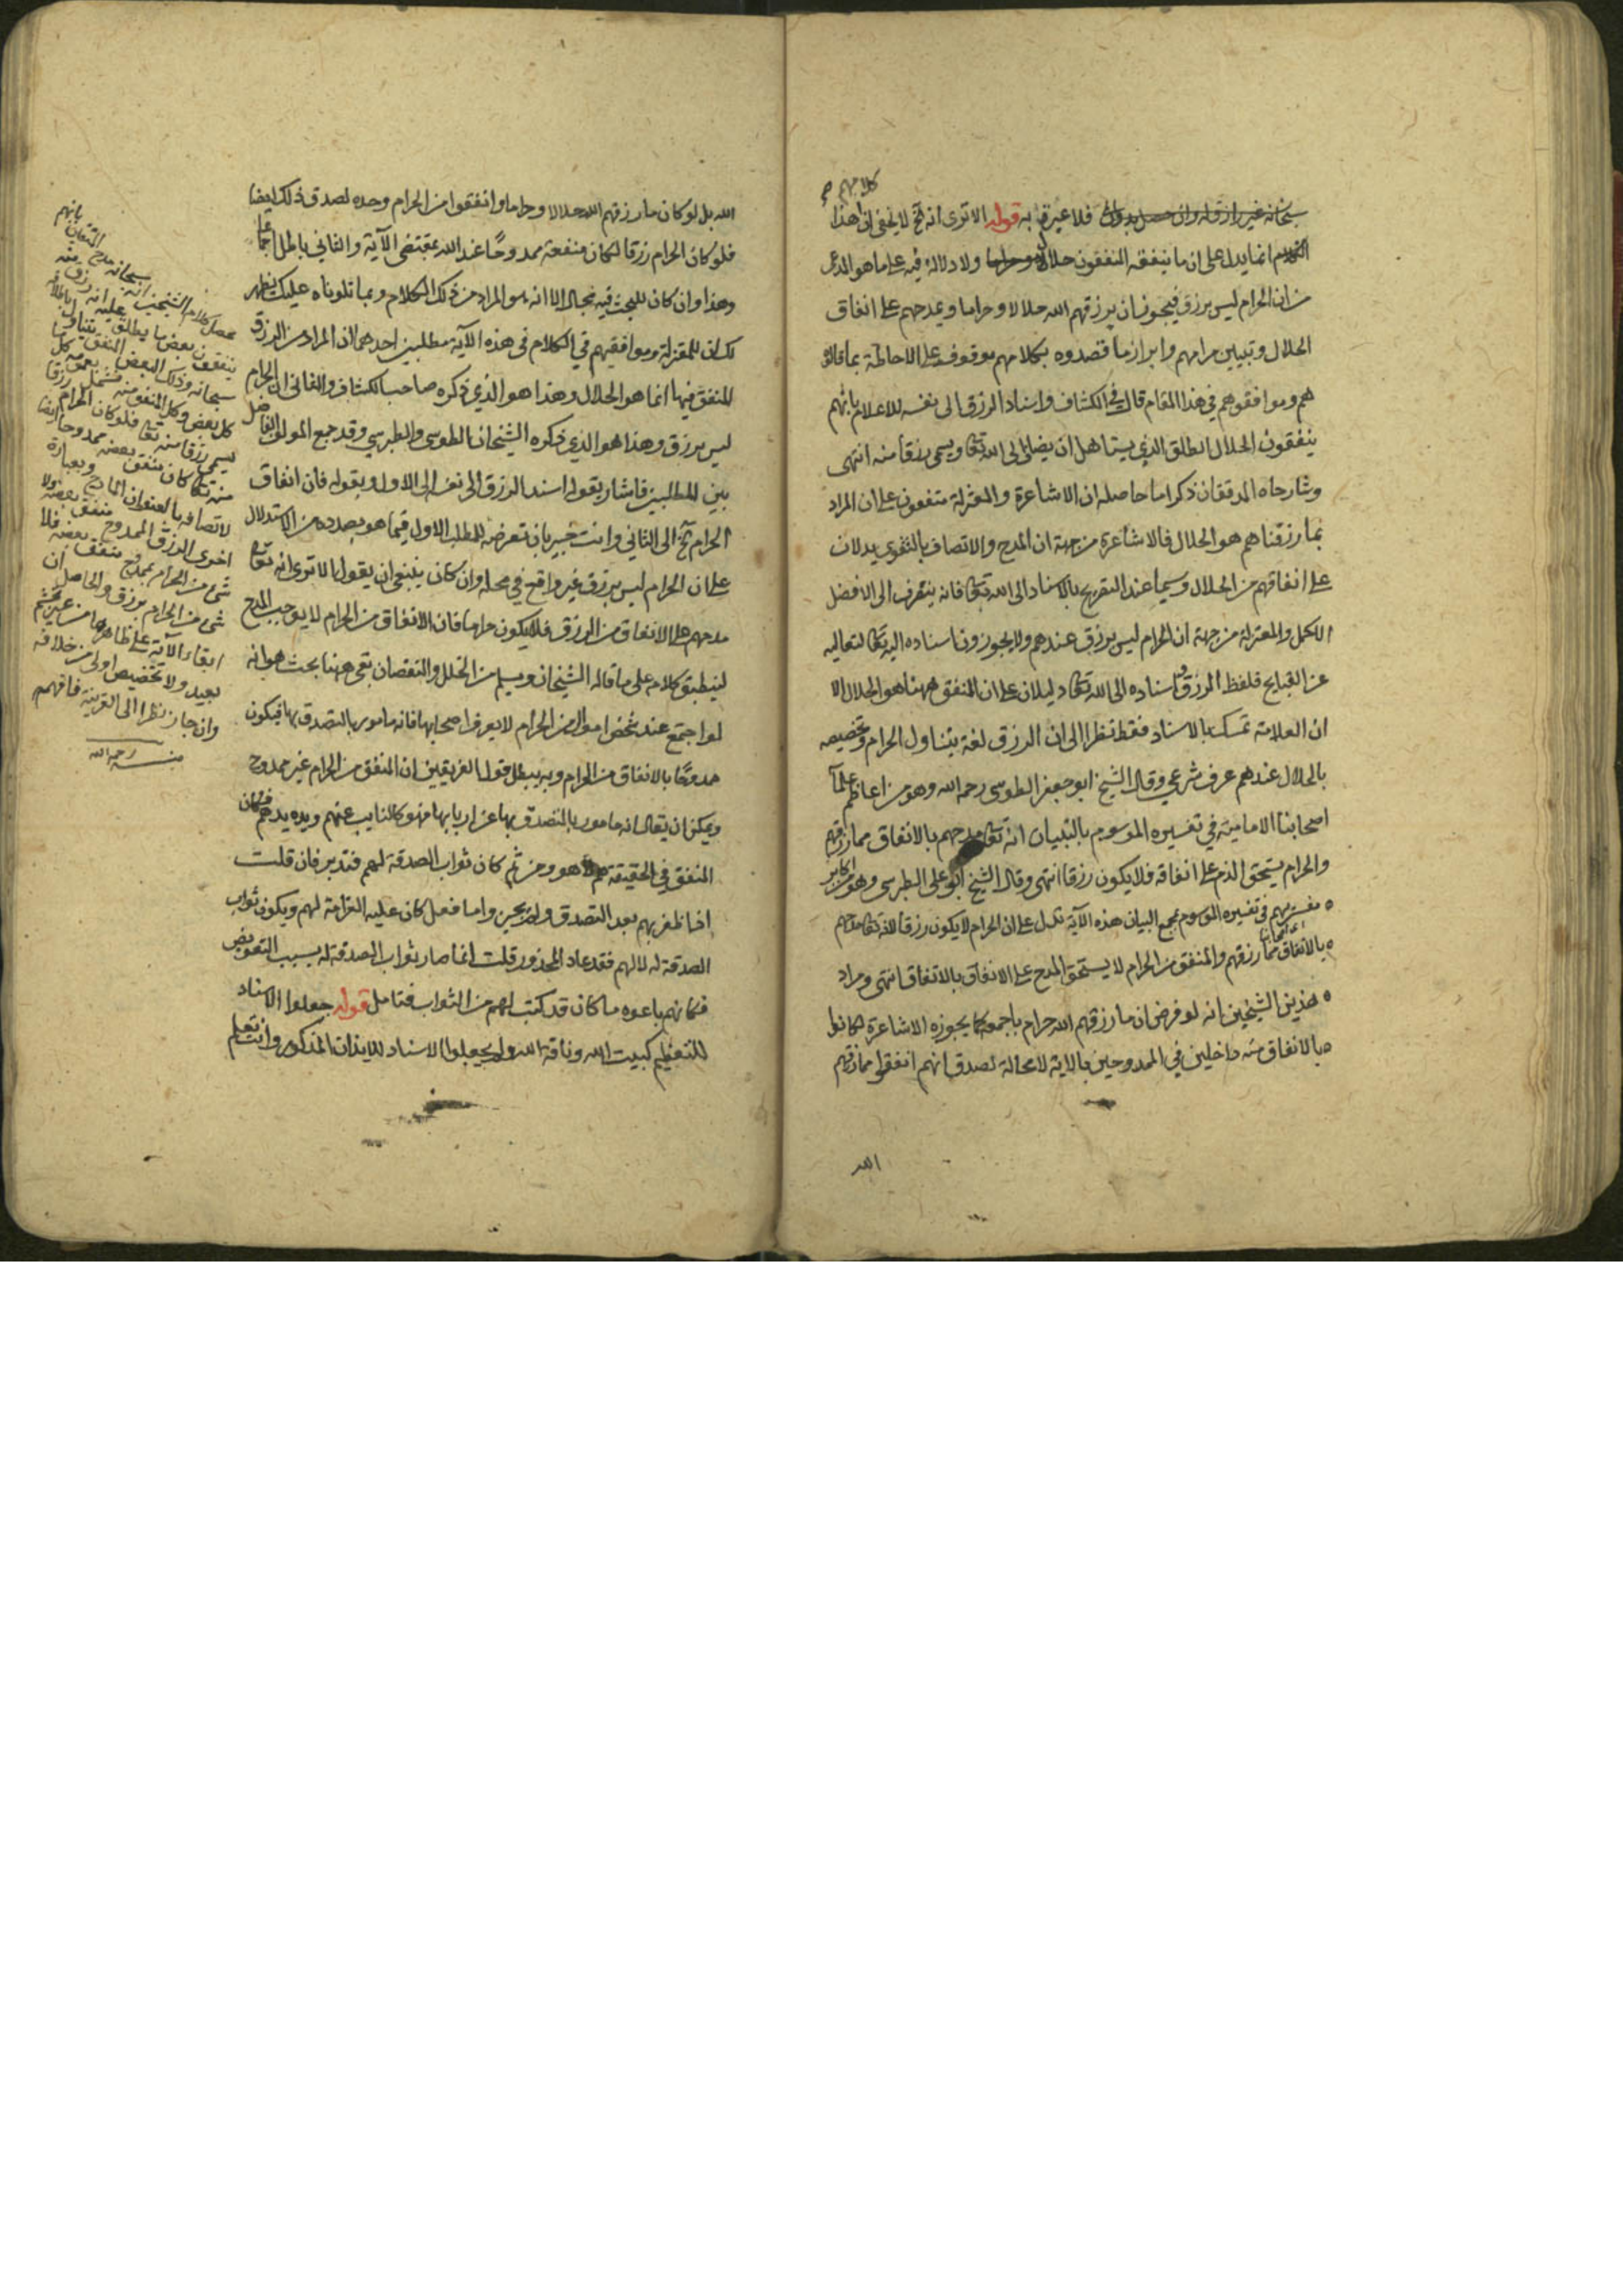 كلامهم
سبحانه غير رازق له وان حصل بدون فلا عبرة به قوله الا ترى انه تع لا يخفى ان هذا
الكلام انما يدل على ان ما ينفقه المنفقون حلال ولا دلالة فيه على ما هو المدعى
من ان الحرام ليس برزق فيجوز ان يرزقهم الله حلالا وحراما ويمدحهم على انفاق
الحلال وتبيين مرامهم وابراز ما قصدوه بكلامهم موقوف على الاحاطة بما قالوه
هم وموافقوهم في هذا المقام قال في الكشاف واسناد الرزق الى نفسه للاعلام بانهم
ينفقون الحلال الطلق الذي يستاهل ان يضاف الى الله تعالى ويسمى رزقا منه انتهى
وشارحاه المدققان ذكرا ما حاصله ان الاشاعرة والمعتزلة متفقون على ان المراد
بما رزقناهم هو الحلال فالاشاعرة من جهة ان المدح والاتصاف بالتقوى يدلان
على انفاقهم من الحلال وسيما عند التصريح بالاسناد الى الله تعالى فانه ينصرف الى الافضل
الاكمل والمعتزلة من جهة ان الحرام ليس برزق عندهم ولا يجوزون اسناده اليه تعالى لتعاليه
عن القبايح فلفظ الرزق واسناده الى الله تعالى دليلان على ان المنفق ههنا هو الحلال الا
ان العلامة تمسك بالاسناد فقط نظرا الى ان الرزق لغة يتناول الحرام وتخصيصه
بالحلال عندهم عرف شرعي وقال الشيخ ابو جعفر الطوسي رحمه الله وهو من اعاظم علماء
اصحابنا الامامية في تفسيره الموسوم بالتبيان انه تعالى مدحهم بالانفاق مما رزقهم
والحرام يستحق الذم على انفاقه فلا يكون رزقا انتهى وقال الشيخ ابو على الطبرسي وهو من اكابر
مفسريهم في تفسيره الموسوم بمجمع البيان هذه الآية تدل على ان الحرام لا يكون رزقا لانه تعالى مدحهم
بالانفاق مما رزقهم والمنفق من الحرام لا يستحق المدح على الانفاق بالاتفاق انتهى ومراد
هذين الشيخين انه لو فرض ان ما رزقهم الله حرام باجمعه كما يجوزه الاشاعرة لكانوا
بالانفاق منه داخلين في الممدوحين بالاية لا محالة لصدق انهم انفقوا مما رزقهم
الله
الله بل لو كان ما رزقهم الله حلالا وحراما وانفقوا من الحرام وحده لصدق ذلك ايضا
فلو كان الحرام رزقا لكان منفقه ممدوحًا عند الله بمقتضى الآية والثاني باطل اجماعا
وهذا وان كان للبحث فيه مجال الا انه هو المراد من ذلك الكلام وبما تلوناه عليك يظهر
لك ان للمعتزلة وموافقيهم في الكلام في هذه الآية مطلبين احدهما ان المراد من الرزق
المنفق فيها انما هو الحلال وهذا هو الذي ذكره صاحب الكشاف والثاني ان الحرام
ليس برزق وهذا هو الذي ذكره الشيخان الطوسي والطبرسي وقد جمع المولى الفاضل
بين المطلبين فاشار بقوله اسند الرزق الى نفسه الى الاول وبقوله فان انفاق
الحرام الخ الى الثاني وانت خبير بان تعرضه للمطلب الاول فيما هو بصدده من الاستدلال
على ان الحرام ليس برزق غير واقع في محله وان كان ينبغي ان يقول الا ترى انه تعالى
مدحهم على الانفاق من الرزق فلا يكون حراما فان الانفاق من الحرام لا يوجب المدح
لينطبق كلامه على ما قاله الشيخان ويسلم من الخلل والنقصان بقي ههنا بحث هو انه
لو اجتمع عند شخص اموال من الحرام لا يعرف اصحابها فانه مامور بالتصدق بها فيكون
ممدوحًا بالانفاق من الحرام وبه يبطل قول الفريقين ان المنفق من الحرام غير ممدوح
ويمكن ان يقال انه مامور بالتصدق بها عن اربابها فهو كالنايب عنهم ويده يدهم فكان
المنفق في الحقيقة هم لا هو ومن ثم كان ثواب الصدقة لهم فتدبر فان قلت
اذا ظفر بهم بعد التصدق ولم يجيزوا ما فعل كان عليه الغرامة لهم ويكون ثواب
الصدقة له لا لهم فقد عاد المحذور قلت انما صار ثواب الصدقة له بسبب التعويض
فكانهم باعوه ما كان قد كتب لهم من الثواب فتامل قوله جعلوا الاسناد
للتعظيم كبيت الله وناقة الله ولم يجعلوا الاسناد للايذان المذكور وانت تعلم
محصل كلام الشيخين انه سبحانه مدح المتقين بانهم
ينفقون بعض ما يطلق عليه انه رزق
سبحانه وذلك البعض المنفق يتناول
كل بعض وكل المنفق منه يشمل كل
يسمى رزقا منه تعالى فلو كان الحرام رزقا
منه تعالى كان منفق بعضه ممدوحا ايضا
لاتصافه بالعنوان المادح وبعبارة
اخرى الرزق الممدوح منفق بعضه ولا
شيء من الحرام بممدوح منفق بعضه فلا
شيء من الحرام برزق والحاصل ان
ابقاء الآية على ظاهرها من غير تجشم
بعيد ولا تخصيص اولى من خلافه
وان جاز نظرا الى القرينة فافهم
منه رحمه الله